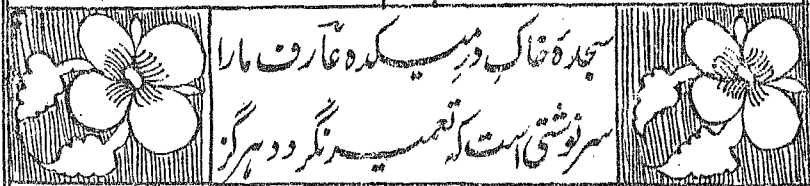 سجدۀ خاکِ درِ میکده عارف مارا
سرنوشتی است که تعمیر نگردد هرگز